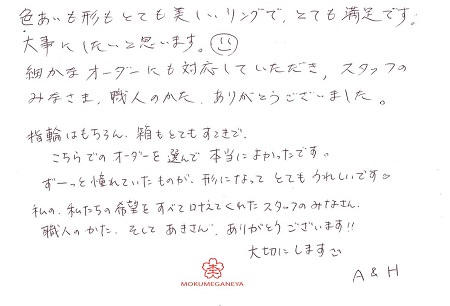 色あいも形もとても美しいリングで、とても満足です。
大事にしたいと思います。
細かなオーダーにも対応していただき、スタッフの
みなさま、職人のかた、ありがとうございました。
指輪はもちろん、箱もとてもすてきで、
こちらでのオーダーを選んで本当によかったです。
ずーっと憧れていたものが、形になってとてもうれしいです。
私の、私たちの希望をすべて叶えてくれたスタッフのみなさん、
職人のかた、そしてあきさん、ありがとうございます!!
大切にします
A & H
MOKUMEGANEYA